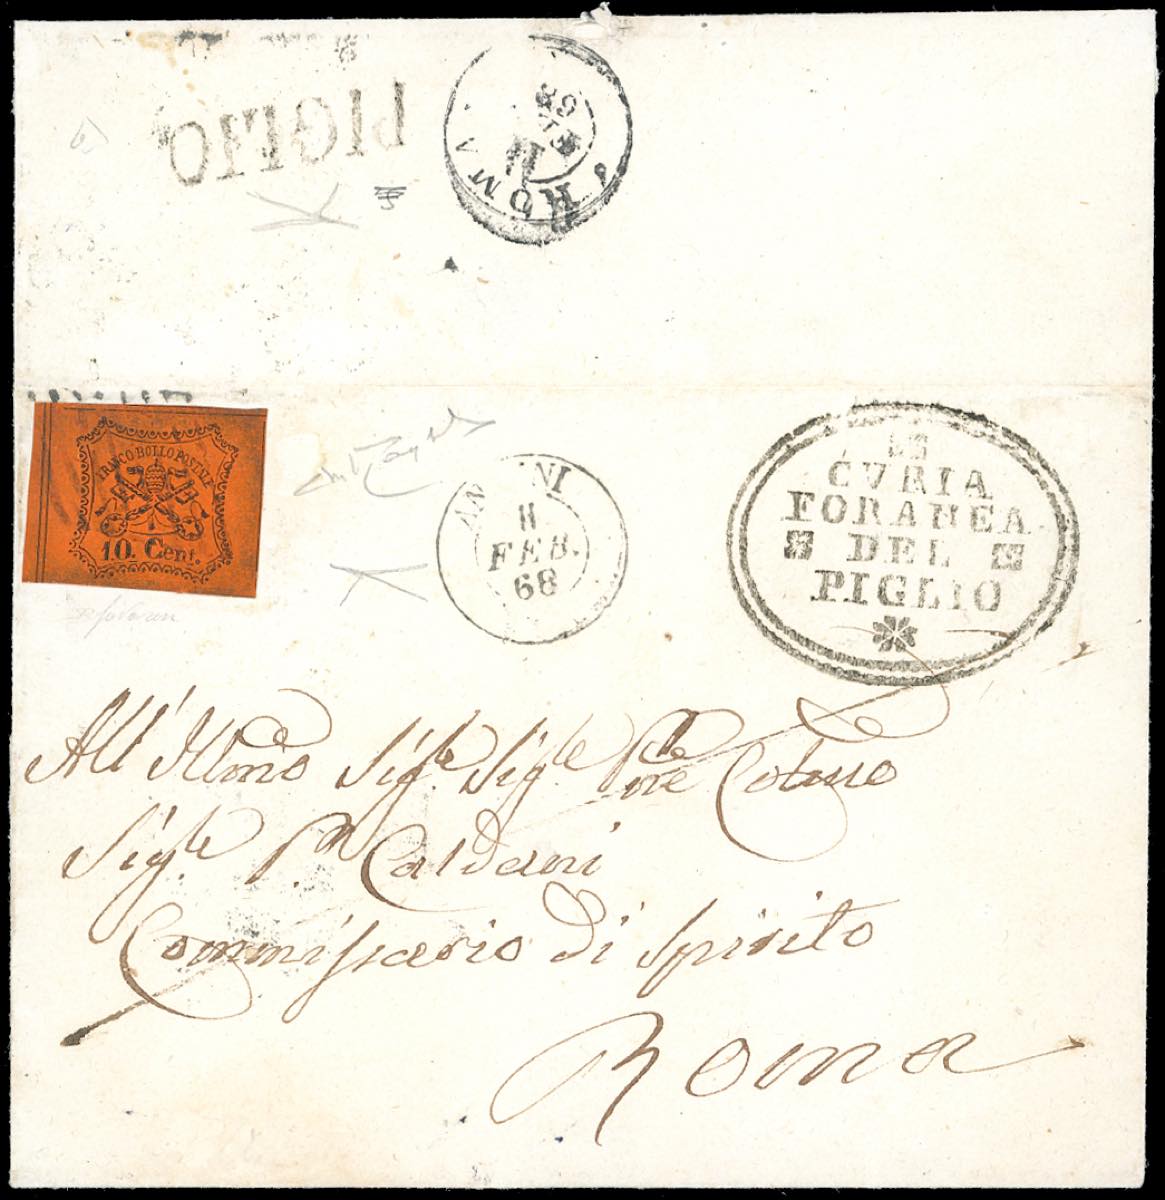 PIGLIO
ROMA
11
FEB
68
FRANCO BOLLO POSTALE
10. Cent.
ANAGNI
11
FEB.
68
CVRIA
FORANEA
DEL
PIGLIO
All' Illmo Sigre Sigre Pne Colmo
Sigre Caldani
Commissario di Spirito
Roma